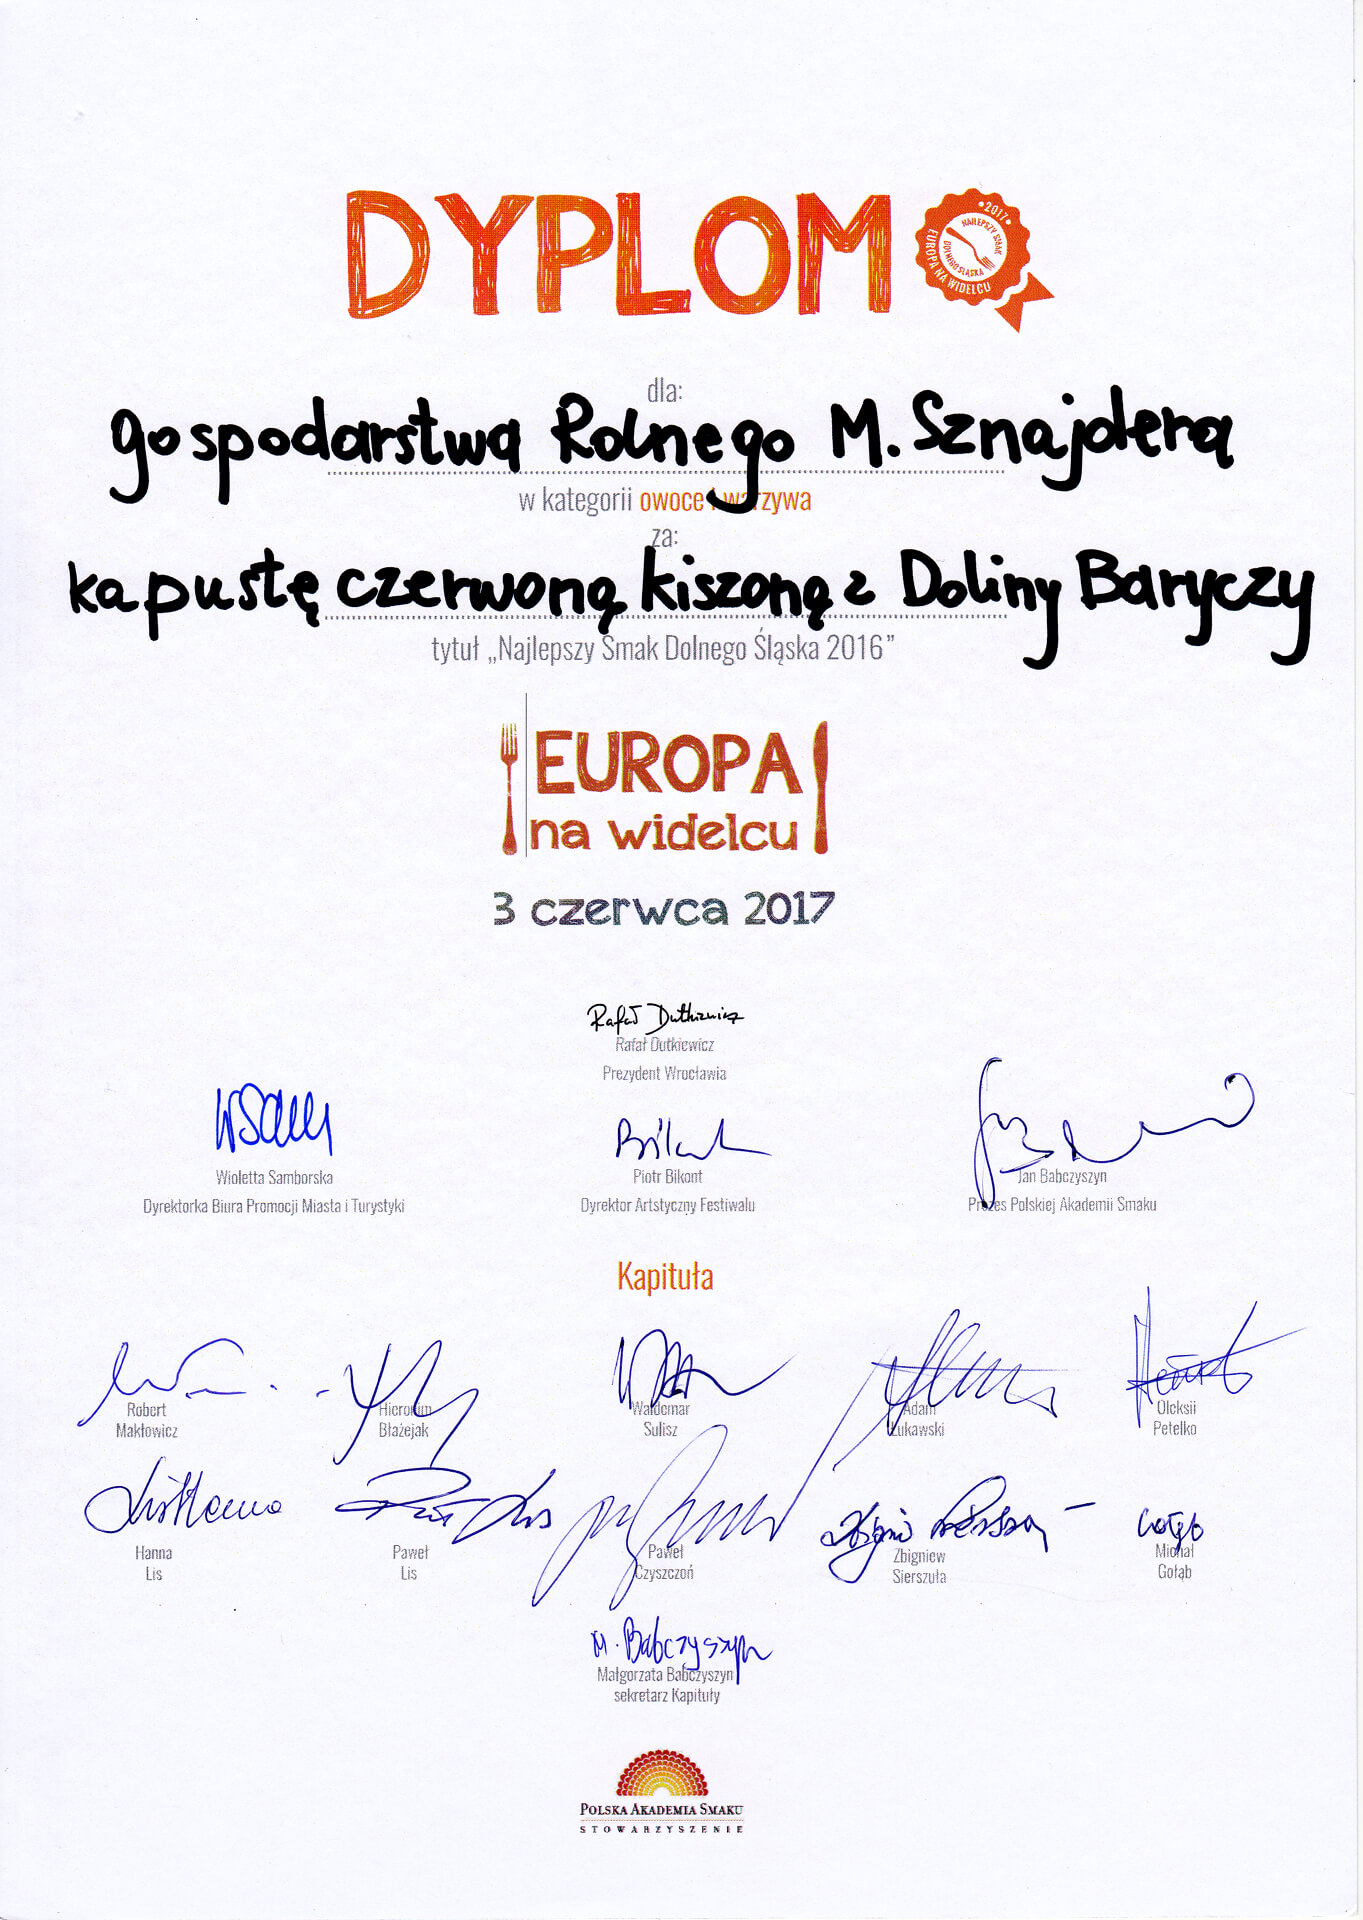 DYPLOM
2017
NAJLEPSZY SMAK
DOLNEGO ŚLĄSKA
EUROPA NA WIDELCU
dla:
gospodarstwa Rolnego M. Sznajdera
w kategorii owoce i warzywa
za:
kapustę czerwoną kiszoną z Doliny Baryczy
tytuł „Najlepszy Smak Dolnego Śląska 2016”
EUROPA
na widelcu
3 czerwca 2017
Rafał Dutkiewicz
Rafał Dutkiewicz
Prezydent Wrocławia
Wioletta Samborska
Dyrektorka Biura Promocji Miasta i Turystyki
Bikont
Piotr Bikont
Dyrektor Artstyczny Festiwalu
Jan Babczyszyn
Prezes Polskiej Akademii Smaku
Kapituła
Robert
Makłowicz
Hieronim
Błażejak
Waldemar
Sulisz
Adam
Łukawski
Oleksii
Petelko
Lis Hanna
Hanna
Lis
Paweł
Lis
Paweł
Czyszczoń
Zbigniew
Sierszuła
Gołąb
Michał
Gołąb
M. Babczyszyn
Małgorzata Babczyszyn
sekretarz Kapituły
POLSKA AKADEMIA SMAKU
STOWARZYSZENIE